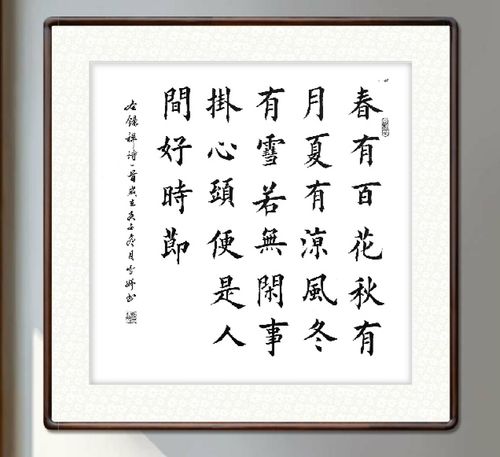 春有百花秋有
月夏有涼風冬
有雪若無閑事
掛心頭便是人
間好時節
右錄禅詩一首歲